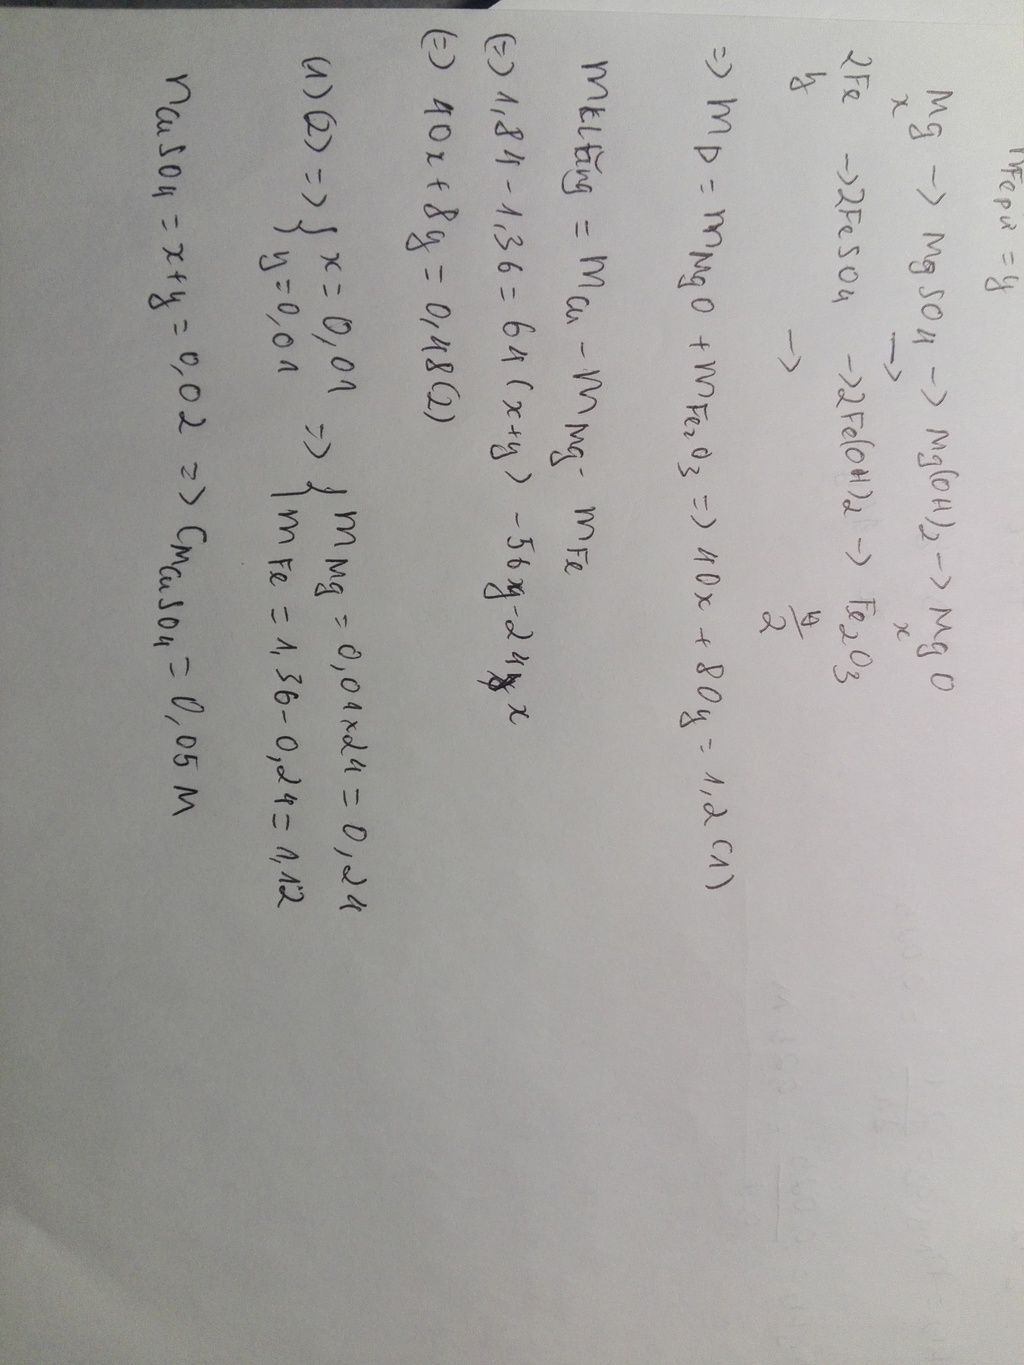 nFe pư = y
Mg → MgSO4 → Mg(OH)2 → MgO
x → x
2Fe → 2FeSO4 → 2Fe(OH)2 → Fe2O3
y → y/2
=> mD = mMgO + mFe2O3 => 40x + 80y = 1,2 (1)
mKL tăng = mCu - mMg - mFe
(=) 1,84 - 1,36 = 64(x+y) - 56y - 24x
(=) 40x + 8y = 0,48 (2)
(1) (2) => { x = 0,01 => { mMg = 0,01x24 = 0,24
y = 0,01 mFe = 1,36 - 0,24 = 1,12
nCuSO4 = x+y = 0,02 => CMCuSO4 = 0,05 M